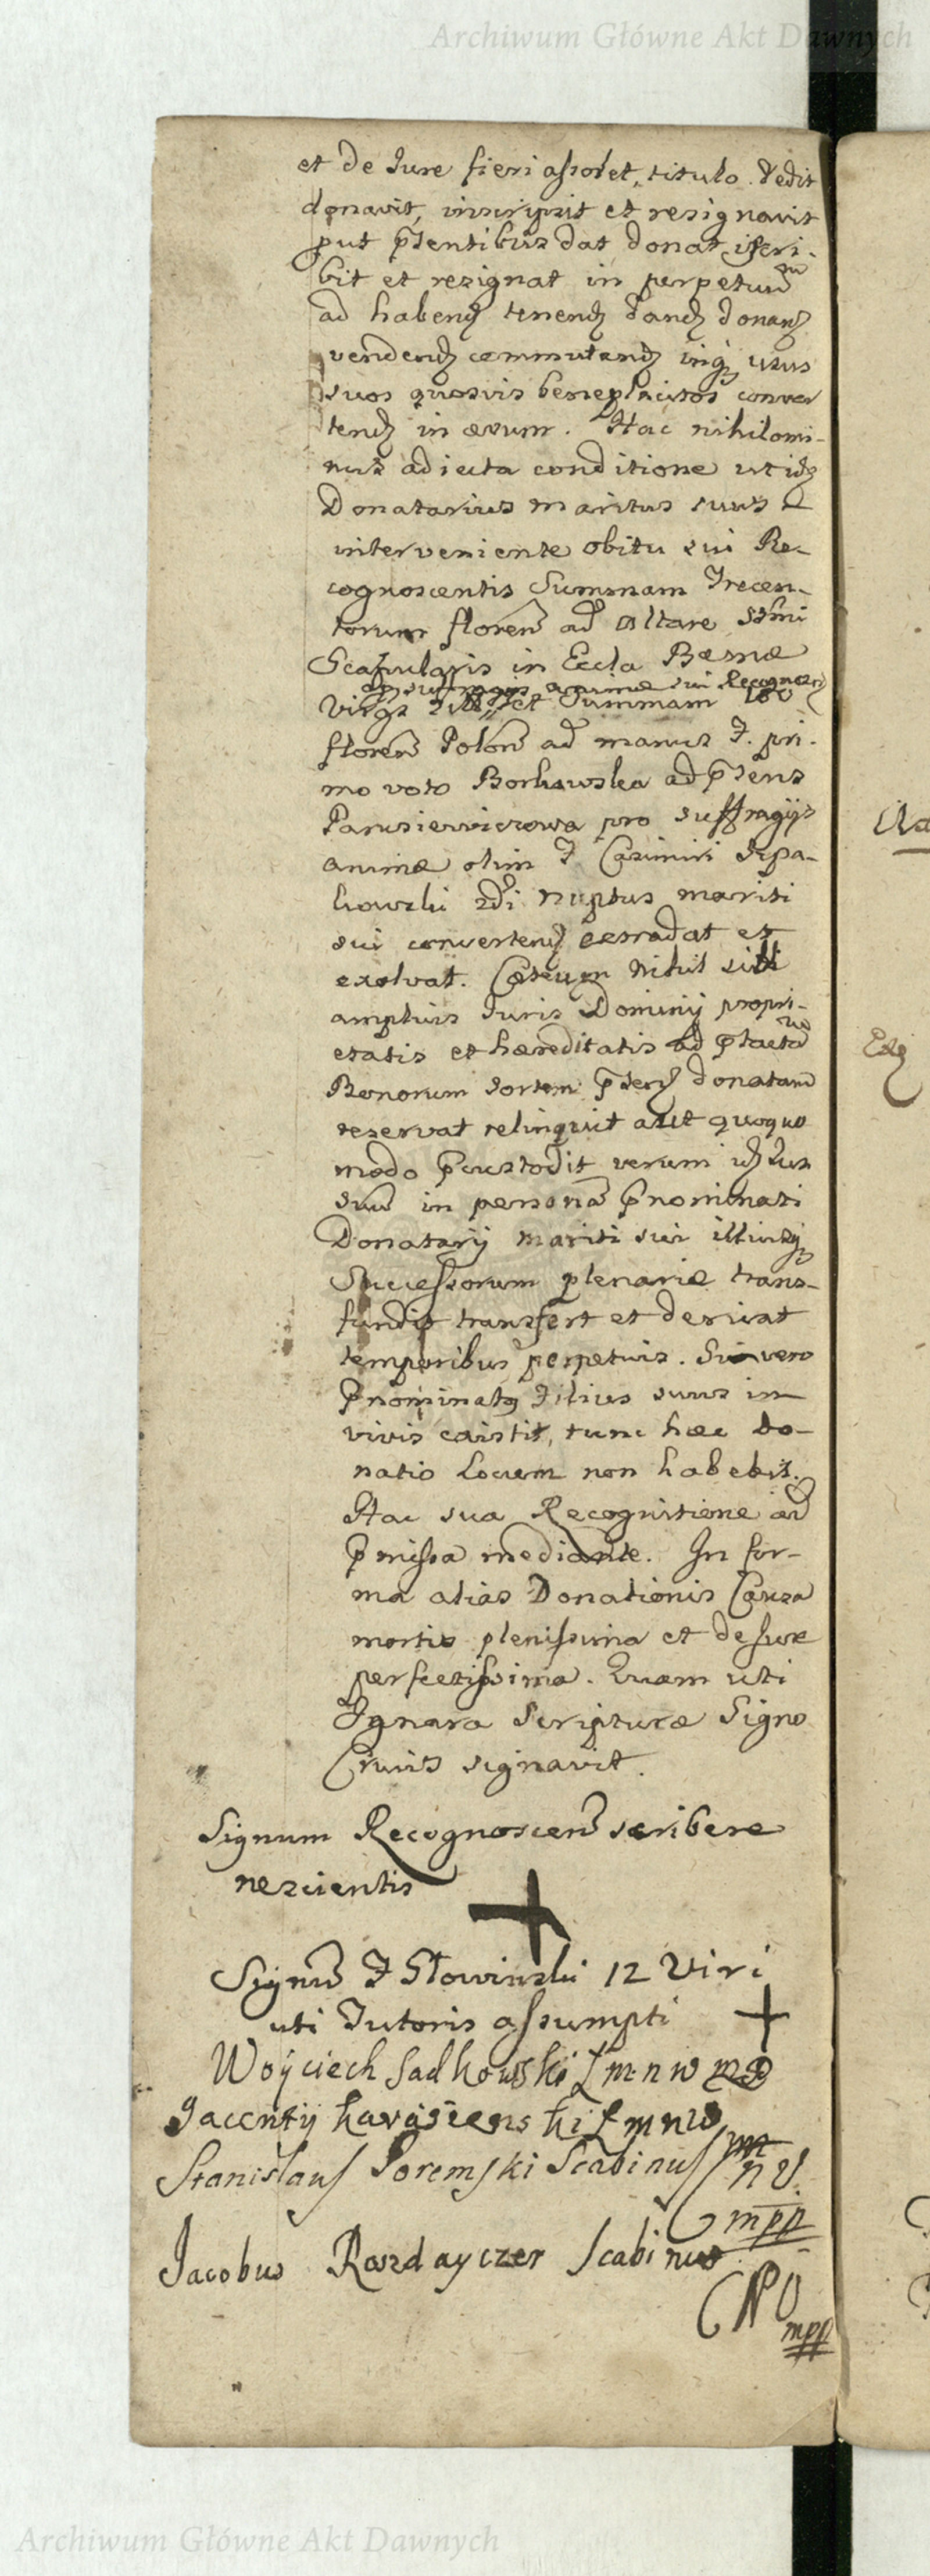 Archiwum Główne Akt Dawnych
et de Jure fieri assolet, titulo. Dedit
donavit, inscripsit et resignavit
put pñtentibus dat donat isčri-
bit et resignat in perpetuũ
ad habend tenend dand donand
vendend commutand inq usus
suos quosvis beneplacitos conver
tend in ævum. Hac nihilomi-
nus adiecta conditione ut id
Donatarius maritus suus
interveniente obitu sui Re-
cognoscentis Summam Trecen-
torum floreñ ad Altare SSmi
Scapularis in Eccla Bæmæ
animæ sui Recognoscen
Virgs et Summam 180
floreñ Poloñ ad manus F. pri-
mo voto Borkowska ad pñsens
Parusiewiczowa pro suffragijs
animæ olim F Casimiri Sepa-
howski 2di nuptus mariti
sui convertend extradat et
exolvat. Cæterum Nihil sibi
amplius Juris Dominij propri-
etatis et hæreditatis ad ptactã
Bonorum Sortem pñsent donatam
reservat relinquit aut quoquo
modo pcustodit verum id Jus
suũ in personã pnominati
Donatarij mariti sui illiusq
Successorum plenarie trans-
fundit transfert et derivat
temporibus perpetuis. Si vero
pnominatq Filius suus in
vivis existit, tunc hæc Do-
natio Locum non habebit.
Hac sua Recognitione ad
pmissa mediante. In for-
ma alias Donationis Causa
mortis plenissima et de Jure
perfectissima. Quam uti
Ignara Scripturæ Signo
Crucis signavit.
Signum Recognosceñ scribere
nescientis
Signũ F Słowinski 12 Viri
uti Tutoris assumpti
Woyciech Sadkowski Ł m n w mpp
Jacenty Ł m n w
Stanislaus Poremski Scabinus m
n V.
mpp
Jacobus Rozdayczer Scabinus
mpp
Cla
Archiwum Główne Akt Dawnych